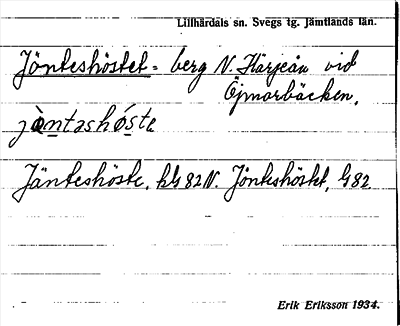 Lillhärdals sn. Svegs tg. Jämtlands län.
Jönteshöstet = berg N. Härjeån vid
Öjmorbäcken.
jòntəshóste
Jänteshöste, 82 N. Jönteshöstet, G 82
Erik Eriksson 1934.